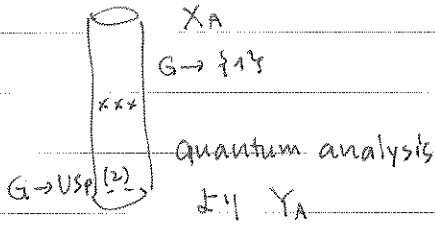 X_A
G→{1}
×××
quantum analysis
G→USp(2)
より Y_A